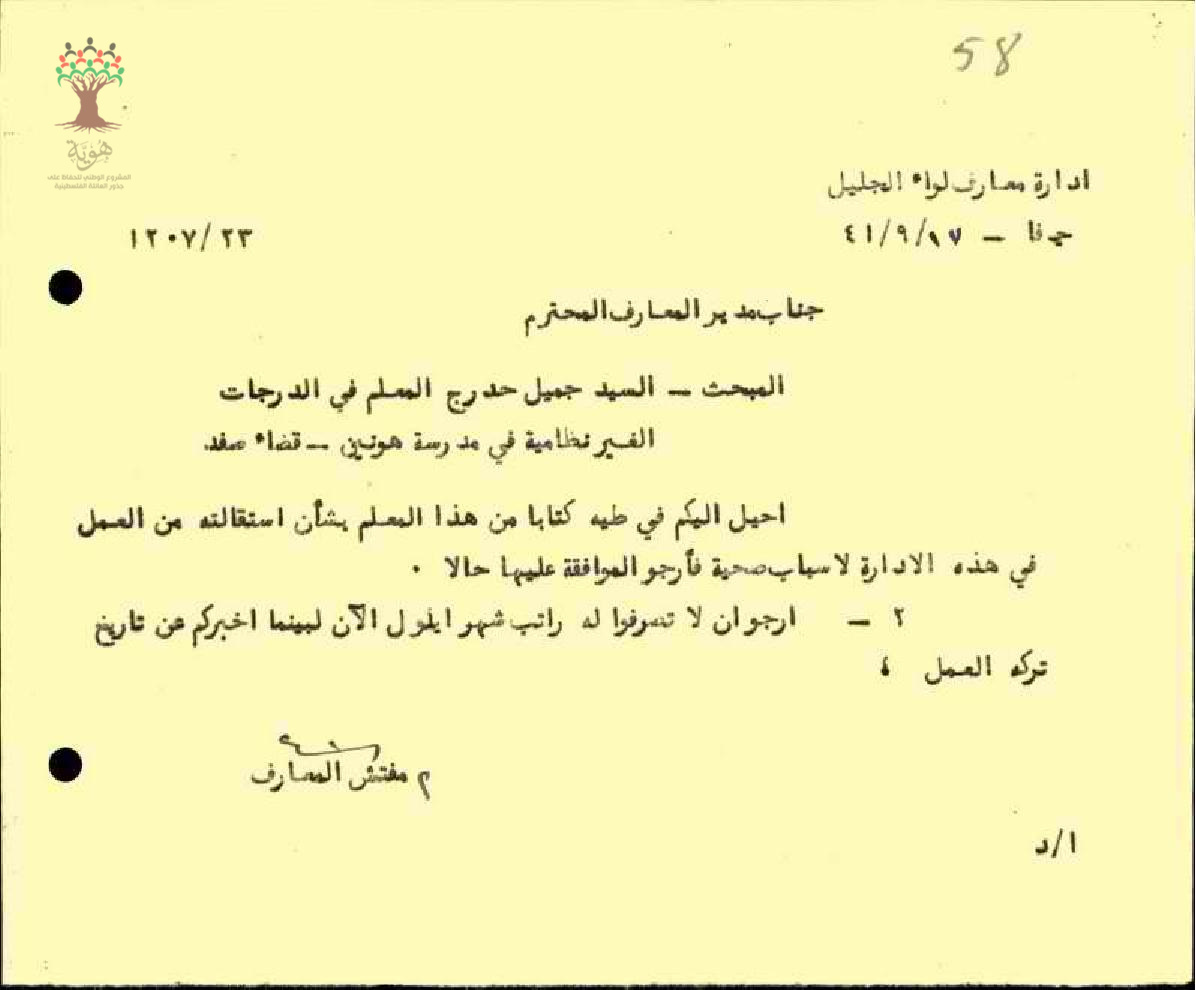 58
هوية
المشروع الوطني للحفاظ على
جذور العائلة الفلسطينية
ادارة معارف لواء الجليل
حيفا – ١٧/٩/٤١
١٢٠٧/٢٣
جناب مدير المعارف المحترم
المبحث – السيد جميل حدرج المعلم في الدرجات
الغير نظامية في مدرسة هونين – قضاء صفد
احيل اليكم في طيه كتابا من هذا المعلم بشأن استقالته من العمل
في هذه الادارة لاسباب صحية فأرجو الموافقة عليها حالا ٠
٢ – ارجو ان لا تصرفوا له راتب شهر ايلول الآن لبينما اخبركم عن تاريخ
تركه العمل ٤
م مفتش المعارف
ا/د